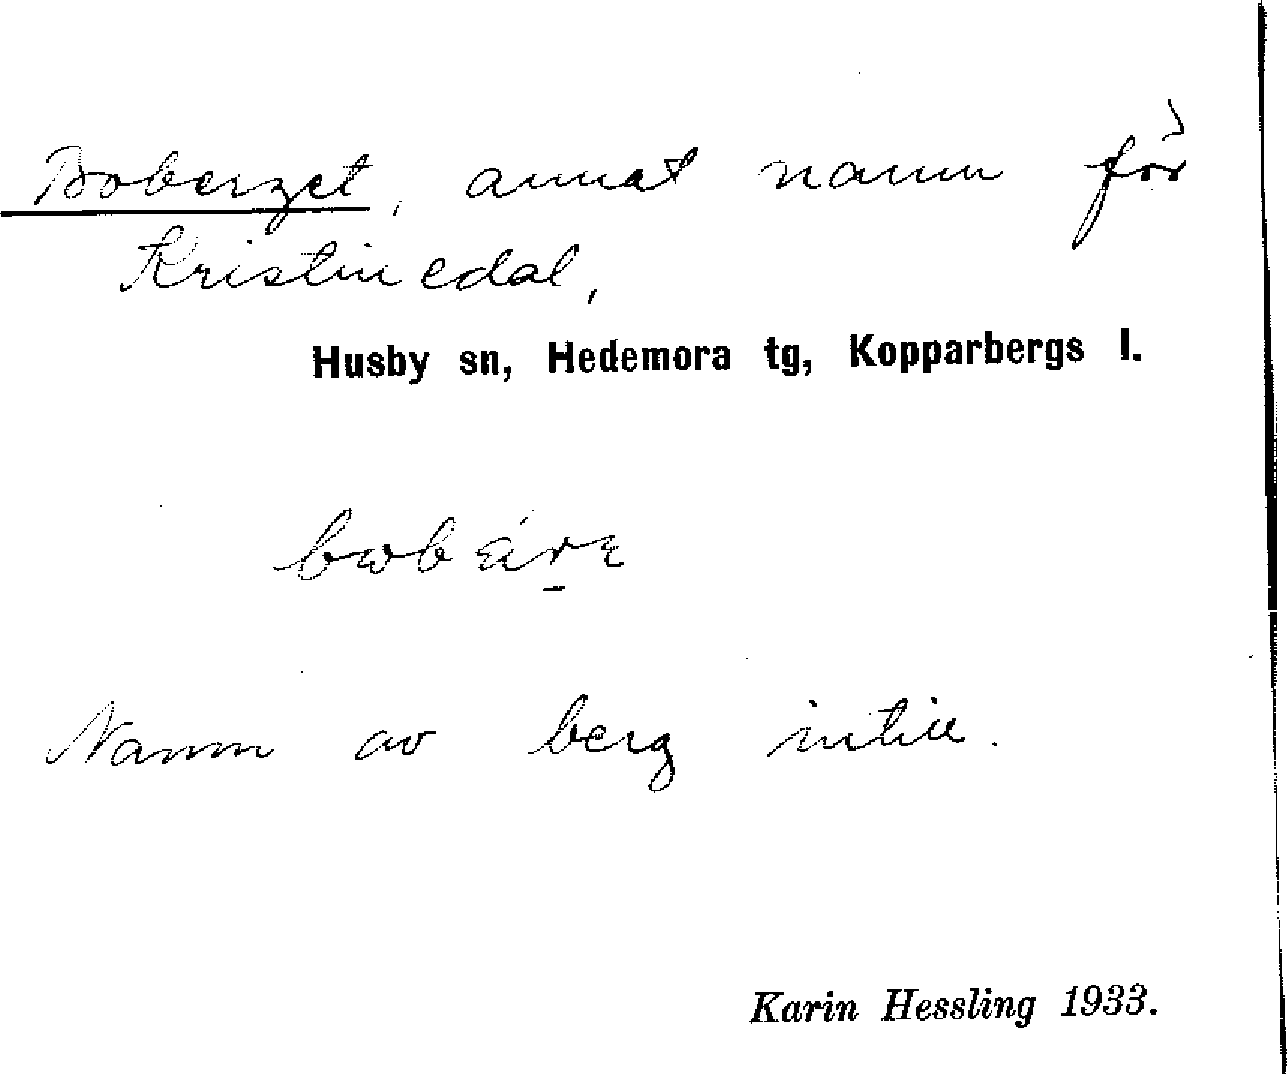 Boberget, annat namn för
Kristinedal,
Husby sn, Hedemora tg, Kopparbergs l.
Namn av berg intill.
Karin Hessling 1933.